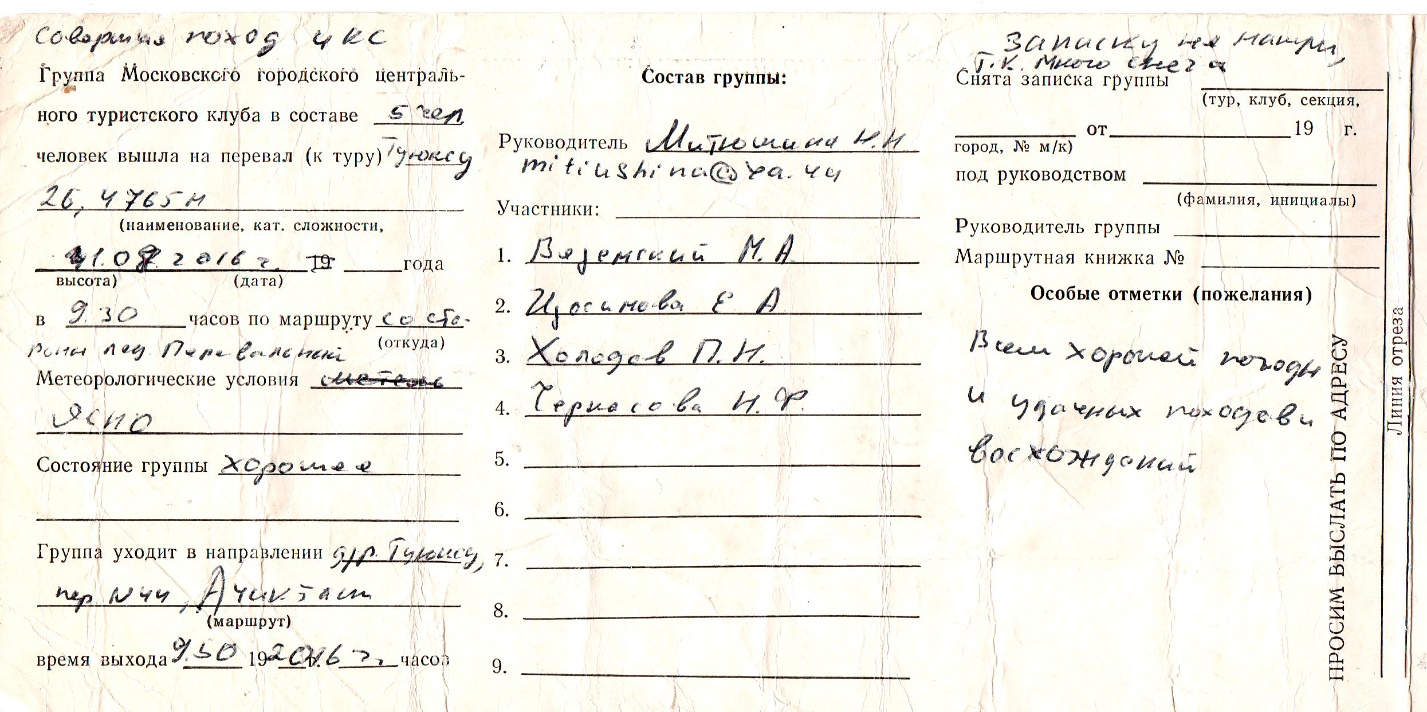 Совершил поход 4 КС
Группа Московского городского централь-
ного туристского клуба в составе 5 чел
человек вышла на перевал (к туру) Туюксу
2Б, 4765 м
(наименование, кат. сложности,
2016 г. 19 года
высота) (дата)
в 9 30 часов по маршруту со сто-
(откуда)
роны лед. Перевальный
Метеорологические условия
ясно
Состояние группы хорошее
Группа уходит в направлении Туюксу,
пер N 44, Ачикташ
(маршрут)
время выхода 9.50 19 2016 г. часов
Состав группы:
Руководитель Митюшина Н.Н
mitiushina@ya.ru
Участники:
1. Вяземский М.А
2. Е А
3. Холодов П.Н.
4. Черкасова Н.Ф.
5.
6.
7.
8.
9.
Записку не нашли,
т.к. много снега
Снята записка группы
(тур, клуб, секция,
от 19 г.
город, № м/к)
под руководством
(фамилия, инициалы)
Руководитель группы
Маршрутная книжка №
Особые отметки (пожелания)
Всем хорошей погоды
и удачных походов и
восхождений
ПРОСИМ ВЫСЛАТЬ ПО АДРЕСУ
Линия отреза